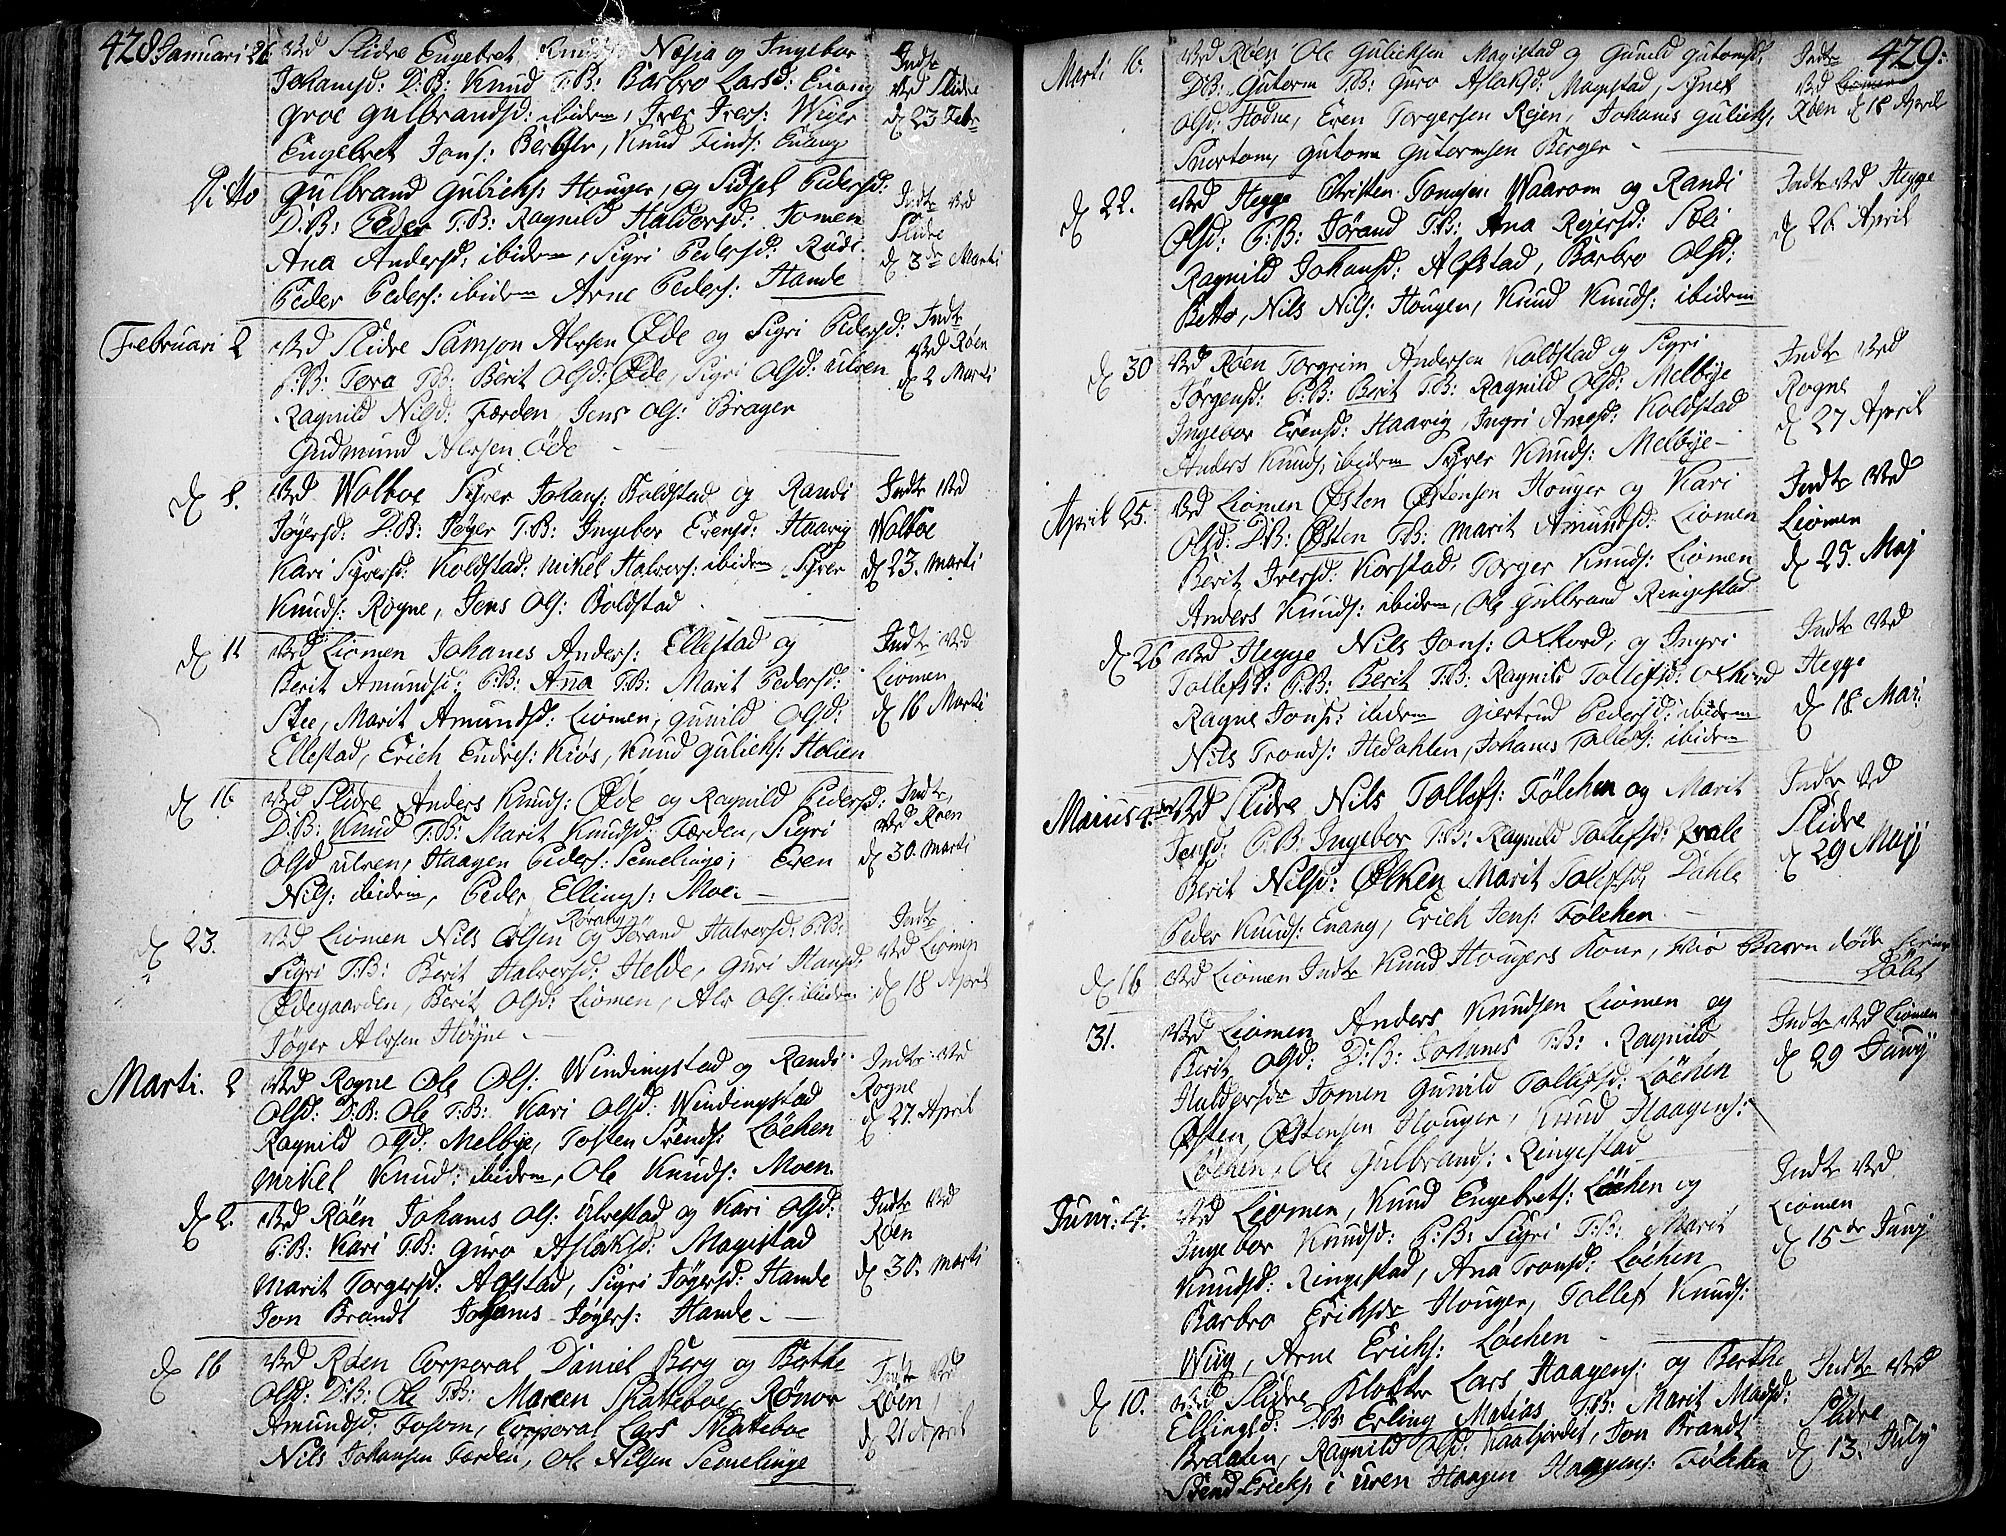 428 Januari 26. Ved Slidre Engebret Knuds: Næsia og Ingebor
Johansd: D:B: Knud T:B: Barbro Larsd: Enang
groe gulbrandsd: ibidem, Iver Ivers: Wiger
Engebret Jons: Berger, Knud Finds: Enang
Indtr
Ved Slidre
d 23 Febr
Ditto gulbrand gulichs: Houger, og Sidsel Pedersd:
D.B: Peder T:B: Ragnild Haldorsd: Jomen
Ana Andersd: ibidem, Sigri Pedersd: Rudi
Peder Peders: ibidem Arne Peders: Hande
Indtr Ved
Slidre
d 3de Marti
Februari 2 Ved Slidre Samson Alvsen Øde og Sigri Pedersd:
P:B: Tora T:B: Berit Olsd: Øde, Sigri Olsd: ulven
Ragnild Nilsd: Færden Jens Ols: Brager
Gudmund Alvsen Øde
Indtr
Ved Røen
d 2 Marti
d 8. Ved Wolboe Syver Johans: Boldstad og Randi
Jøgersd: D:B: Jøger T:B: Ingebor Evensd: Haavig
Kari Syversd: Koldstad, Mikel Halvors: ibidem, Syver
Knuds: Rogne, Jens Ols: Boldstad
Indtr Ved
Wolboe
d 23. Marti
d 11 Ved Liomen Johanes Anders: Ellestad og
Berit Amundsd: P:B: Ana T:B: Marit Pedersd:
Stee, Marit Amundsd: Liomen, gunild Olsd:
Ellestad, Erich Endres: Kiøs, Knud gulichs: Holien
Indtr Ved
Liomen
d 16 Marti
d 16. Ved Slidre Anders Knuds: Øde og Ragnild Pedersd:
D:B: Knud T:B: Marit Knudsd: Færden, Sigri
Olsd ulven, Haagen Peders: Semelinge, Even
Nils: ibidem, Peder Ellings: Moe.
Indtr,
Ved Røen
d 30. Marti
d 23. Ved Liomen Nils Olsen Rørang og Jorand Halvorsd: P:B:
Sigri T:B: Berit Halvorsd: Helde, Guri Hansd:
Ødegaarden, Berit Olsd: Liomen, Alv Ols: ibidem
Jøger Alvsen Høyne
Indtr
Ved Liomen
d 18 April
Marti. 2 Ved Rogne Ole Ols: Windingstad og Randi
Olsd: D:B: Ole T:B: Kari Olsd: Windingstad
Ragnild Olsd: Melbye, Tosten Svends: Løchen
Mikel Knuds: ibidem, Ole Knuds: Moen
Indtr Ved
Rogne
d 27. April
d 2. Ved Røen Johanes Ols: Ulvestad og Kari Olsd:
P:B: Kari T:B: Guro Aslaksd: Magistad
Marit Torgersd: Alfstad, Sigri Jøgersd: Hande
Jon Brandt Johanes Jøgers: Hande
Indtr Ved
Røen
d 30. Marti
d 16 Ved Røen Corporal Daniel Berg og Berthe
Olsd: D:B: Ole T:B: Maren Skatteboe, Rønov
Amundsd: Fosom, Corporal Lars Skateboe
Nils Johansen Færden, Ole Nilsen Semelinge
Indtr Ved
Røen,
d 21 April
429:
Marti 16. Ved Røen Ole Gulichsen Magistad og Gunild Gutomsd:
D:B: Gutorm T:B: Guro Aslaksd: Magestad, Synet
Olsd: Hodne, Even Torgersen Rejen, Johanes Gulichs:
Snortom, gutorm Gutormsen Berger
Indtr
Ved
Røen d 18 April
d 22. Ved Hegge Christen Tomsen Waarom og Randi
Olsd: P:B: Jørand T:B: Ana Rejersd: Søli
Ragnild Johansd: Alfstad, Barbro Olsd:
Betto, Nils Nils: Hougen, Knud Knuds: ibidem
Indtr Ved Hegge
d 26 April
d 30 Ved Røen Torgrim Andersen Koldstad og Sigri
Jørgensd: P:B: Berit T:B: Ragnild Olsd: Melbye
Ingebor Evensd: Haavig, Ingri Arnesd: Koldstad
Anders Knuds: ibidem Syver Knuds: Melbye
Indtr Ved
Rogne
d 27 April
April 25. Ved Liomen Østen Østensen Houger og Kari
Olsd: D:B: Østen T:B: Marit Amundsd: Liomen
Berit Iversd: Korstad, Torger Knuds: Liomen
Anders Knuds: ibidem, Ole Gulbrand Ringestad
Indtr Ved
Liomen
d 25. Maj
d 26 Ved Hegge Nils Jons: Olkiord, og Ingri
Tollefsd: P:B: Berit T:B: Ragnild Tollefsd: Olkiord
Ragne Jonsd: ibidem Giertrud Pedersd: ibidem
Nils Tronds: Hedahlen, Johanes Tollefs: ibidem
Indtr Ved
Hegge
d 18 Maj
Maius 4de Ved Slidre Nils Tollefs: Følchen og Marit
Jensd: P:B: Ingebor T:B: Ragnild Tollefsd: Qvale
Berit Nilsd: Ølken Marit Tolefsd: Dahle
Peder Knuds: Enang, Erich Jens: Følchen
Indtr Ved
Slidre
d 29 Maj
d 16 Ved Liomen Indtr Knud Hougers Kone, hvis Barn døde
Døbt
31. Ved Liomen Anders Knudsen Liomen og
Berit Olsd: D:B: Johanes T:B: Ragnild
Haldorsdr Jomen Gunild Tollefsd: Løchen
Østen Østensen Houger, Knud Haagens:
Løchen, Ole Gulbrands: Ringestad
Indtr Ved Liomen
d 29 Junij
Juni: 4. Ved Liomen, Knud Engebrets: Løchen og
Ingebor Knudsd: P:B: Sigri T:B: Marit
Knudsd: Ringestad, Ana Tronsd: Løchen
Barbro Erichsdr Houger, Tollef Knuds:
Wiig, Arne Erichs: Løchen
Indtr Ved
Liomen
d 15de Junij
d 10. Ved Slidre Klokker Lars Haagens: og Berthe
Ellingsd: D:B: Erling Matias T:B: Marit Madsd:
Braaten, Ragnild Olsd: Kaafjordet, Jon Brandt
Svend Erichs: i uren Haagen Haagens: Følchen
Indtr Ved
Slidre
d 13. Julij